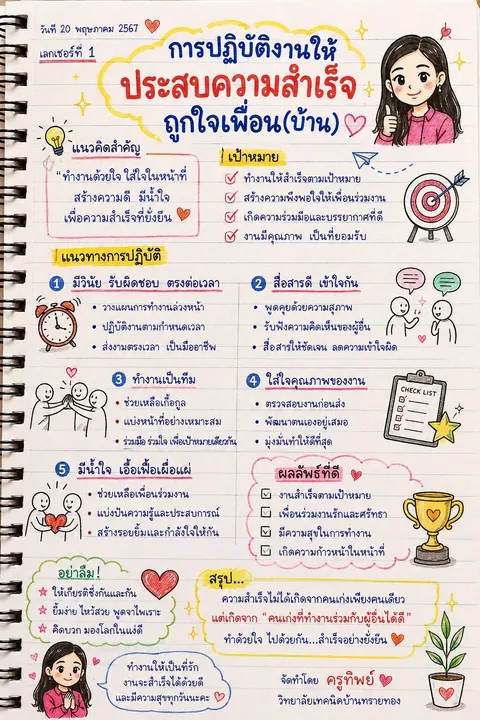 วันที่ 20 พฤษภาคม 2567
เลกเชอร์ที่ 1
การปฏิบัติงานให้
ประสบความสำเร็จ
ถูกใจเพื่อน(บ้าน)
แนวคิดสำคัญ
"ทำงานด้วยใจ ใส่ใจในหน้าที่
สร้างความดี มีน้ำใจ
เพื่อความสำเร็จที่ยั่งยืน
เป้าหมาย
ทำงานให้สำเร็จตามเป้าหมาย
สร้างความพึงพอใจให้เพื่อนร่วมงาน
เกิดความร่วมมือและบรรยากาศที่ดี
งานมีคุณภาพ เป็นที่ยอมรับ
แนวทางการปฏิบัติ
1 มีวินัย รับผิดชอบ ตรงต่อเวลา
• วางแผนการทำงานล่วงหน้า
• ปฏิบัติงานตามกำหนดเวลา
• ส่งงานตรงเวลา เป็นมืออาชีพ
2 สื่อสารดี เข้าใจกัน
• พูดคุยด้วยความสุภาพ
• รับฟังความคิดเห็นของผู้อื่น
• สื่อสารให้ชัดเจน ลดความเข้าใจผิด
3 ทำงานเป็นทีม
• ช่วยเหลือเกื้อกูล
• แบ่งหน้าที่อย่างเหมาะสม
• ร่วมมือ ร่วมใจ เพื่อเป้าหมายเดียวกัน
4 ใส่ใจคุณภาพของงาน
• ตรวจสอบงานก่อนส่ง
• พัฒนาตนเองอยู่เสมอ
• มุ่งมั่นทำให้ดีที่สุด
CHECK LIST
5 มีน้ำใจ เอื้อเฟื้อเผื่อแผ่
• ช่วยเหลือเพื่อนร่วมงาน
• แบ่งปันความรู้และประสบการณ์
• สร้างรอยยิ้มและกำลังใจให้กัน
ผลลัพธ์ที่ดี
งานสำเร็จตามเป้าหมาย
เพื่อนร่วมงานรักและศรัทธา
มีความสุขในการทำงาน
เกิดความก้าวหน้าในหน้าที่
อย่าลืม!
ให้เกียรติซึ่งกันและกัน
ยิ้มง่าย ไหว้สวย พูดจาไพเราะ
คิดบวก มองโลกในแง่ดี
สรุป...
ความสำเร็จไม่ได้เกิดจากคนเก่งเพียงคนเดียว
แต่เกิดจาก "คนเก่งที่ทำงานร่วมกับผู้อื่นได้ดี"
ทำด้วยใจ ไปด้วยกัน...สำเร็จอย่างยั่งยืน
ทำงานให้เป็นที่รัก
งานจะสำเร็จได้ด้วยดี
และมีความสุขทุกวันนะคะ
จัดทำโดย ครูทิพย์
วิทยาลัยเทคนิคบ้านทรายทอง